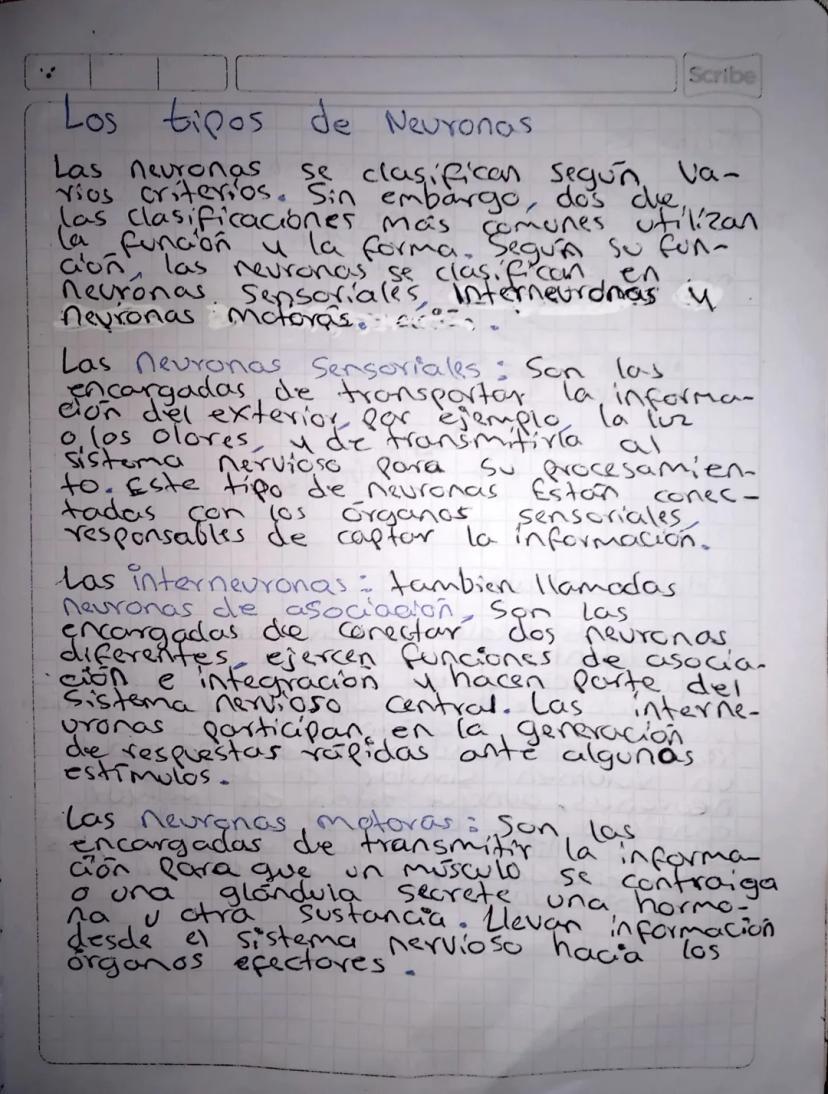 Scribe
Los tipos de Neuronas
Las neuronas se clasifican según va-
rios criterios. Sin embargo, dos de
las clasificaciones más comunes utilizan
la función y la forma. Según su fun-
ción, las neuronas se clasifican en
neuronas sensoriales, interneuronas y
neuronas motoras.
Las neuronas sensoriales: Son las
encargadas de transportar la informa-
ción del exterior, por ejemplo, la luz
o los olores, y de transmitirla al
sistema nervioso para su procesamien-
to. Este tipo de neuronas Están conec-
tadas con los órganos sensoriales,
responsables de captar la información.
Las interneuronas: tambien llamadas
neuronas de asociación, Son las
encargadas de conectar dos neuronas
diferentes, ejercen funciones de asocia-
ción e integración y hacen parte del
sistema nervioso central. Las interne-
uronas participan en la generación
de respuestas rápidas ante algunas
estímulos.
Las neuronas motoras: Son las
encargadas de transmitir la informa-
ción para que un músculo se contraiga
o una glándula secrete una hormo-
na u otra sustancia. Llevan información
desde el sistema nervioso hacia los
órganos efectores.